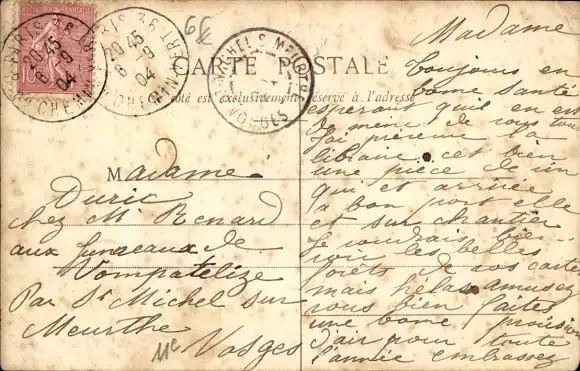 PARIS 36
20 45
6 - 9
04
PARIS 36
20 45
6 - 9
04
66
VOSGES
CARTE POSTALE
Ce côté est exclusivement réservé à l'adresse
Madame
Duric
chez Mr Renard
aux Jumeaux de
Vompatelize
Par St Michel sur
Meurthe
Vosges
Madame
Toujours en
bonne santé
esperant qu'il en est
de même de vous tous
J'ai prévenue la
libraire cet bien
une pièce de un
qui et arrivée
a bon port elle
et sur chantier
Je voudrais bien
voir les belles
forêts de vos cartes
mais helas amusez
vous bien faites
une bonne provision
d'air pour toute
l'année embrassez